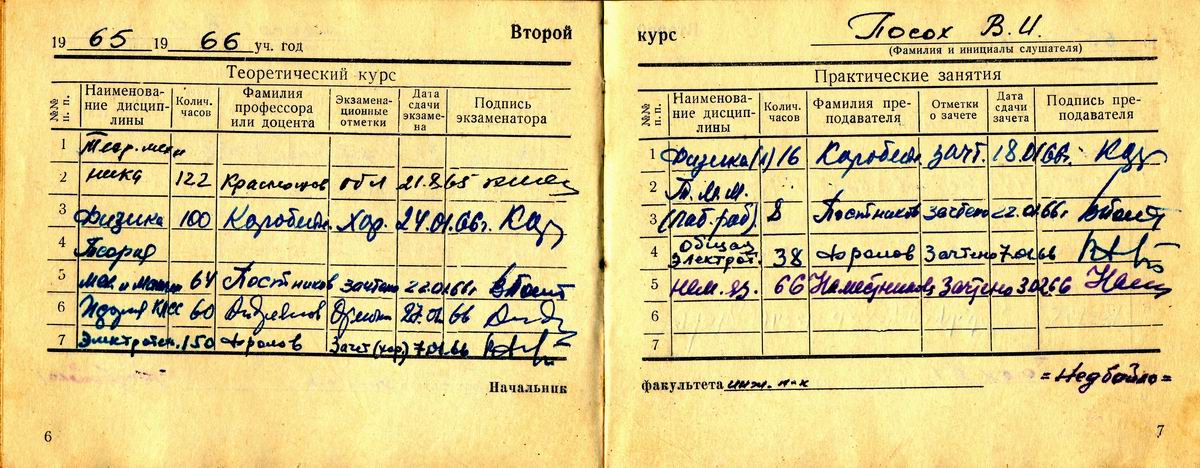 19 65 19 66 уч. год
Второй
Теоретический курс
№№ п. п. Наименование дисциплины Колич. часов Фамилия профессора или доцента Экзаменационные отметки Дата сдачи экзамена Подпись экзаменатора
1 Теор. меха
2 ника 122
3 Физика 100 Хор. 24.01.66г.
4 Теория
5 мех. и машин 64 Постников зачтено 22.01.66г
6 История КПСС 60 66
7 Электротех. 150 Фролов Зачет (хор.) 7.01.66
Начальник
6
курс Посох В. И.
(Фамилия и инициалы слушателя)
Практические занятия
№№ п. п. Наименование дисциплины Колич. часов Фамилия преподавателя Отметки о зачете Дата сдачи зачета Подпись преподавателя
1 Физика (л) 16 зачт. 18.01.66г.
2 Т. М. М.
3 (лаб. раб) 8 Постников зачтено 22.01.66г
4 Общая электрот. 38 Фролов Зачтено 7.01.66
5 нем. яз. 66 Наместников Зачтено 3.02.66
6
7
факультета инж. п-к =Недбайло=
7